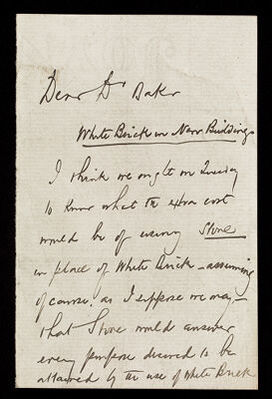 Dear Dr Baker
White Brick in New Buildings
I think we ought on Tuesday
to know what the extra cost
would be of using Stone
in place of White Brick - assuming
of course, as I suppose we may -
that Stone would answer
every purpose desired to be
attained by the use of White Brick